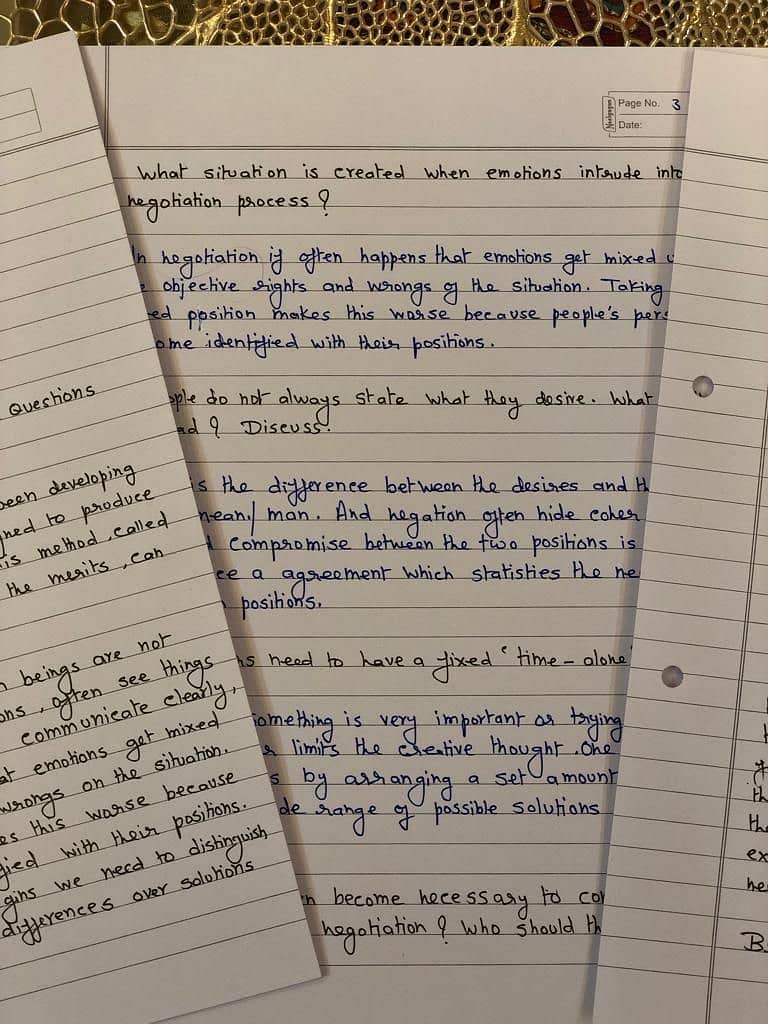 Page No. 3
Date:
What situation is created when emotions intrude into
negotiation process?
In negotiation if often happens that emotions get mixed
objective rights and wrongs of the situation. Taking
position makes this worse because people's
identified with their positions.
do not always state what they desire. What
? Discuss.
is the difference between the desires and
mean/ man. And negation often hide
Compromise between the two positions is
a agreement which statisties the
positions.
need to have a fixed 'time - alone'
something is very important or trying
limits the creative thought. One
by arranging a set amount
range of possible solutions
become necessary to
negotiation? Who should
Questions
been developing
to produce
is method, called
the merits, can
beings are not
, often see things
communicate clearly,
emotions get mixed
wrongs on the situation.
this worse because
with their positions.
we need to distinguish
differences over solutions